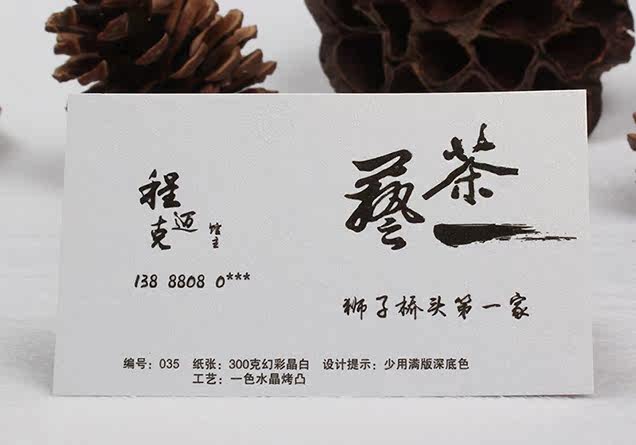 程克迈 馆主
138 8808 0***
茶藝
狮子桥头第一家
编号：035 纸张：300克幻彩晶白 设计提示：少用满版深底色
工艺：一色水晶烤凸